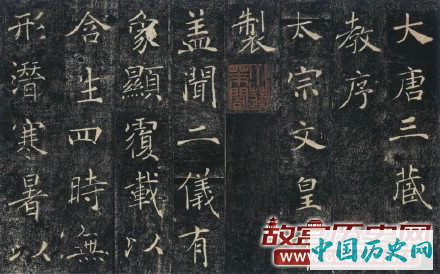 大唐三藏
教序
太宗文皇
製
盖聞二儀有
象顯覆載以
含生四時無
形潛寒暑以
故宫历史网
中国历史网